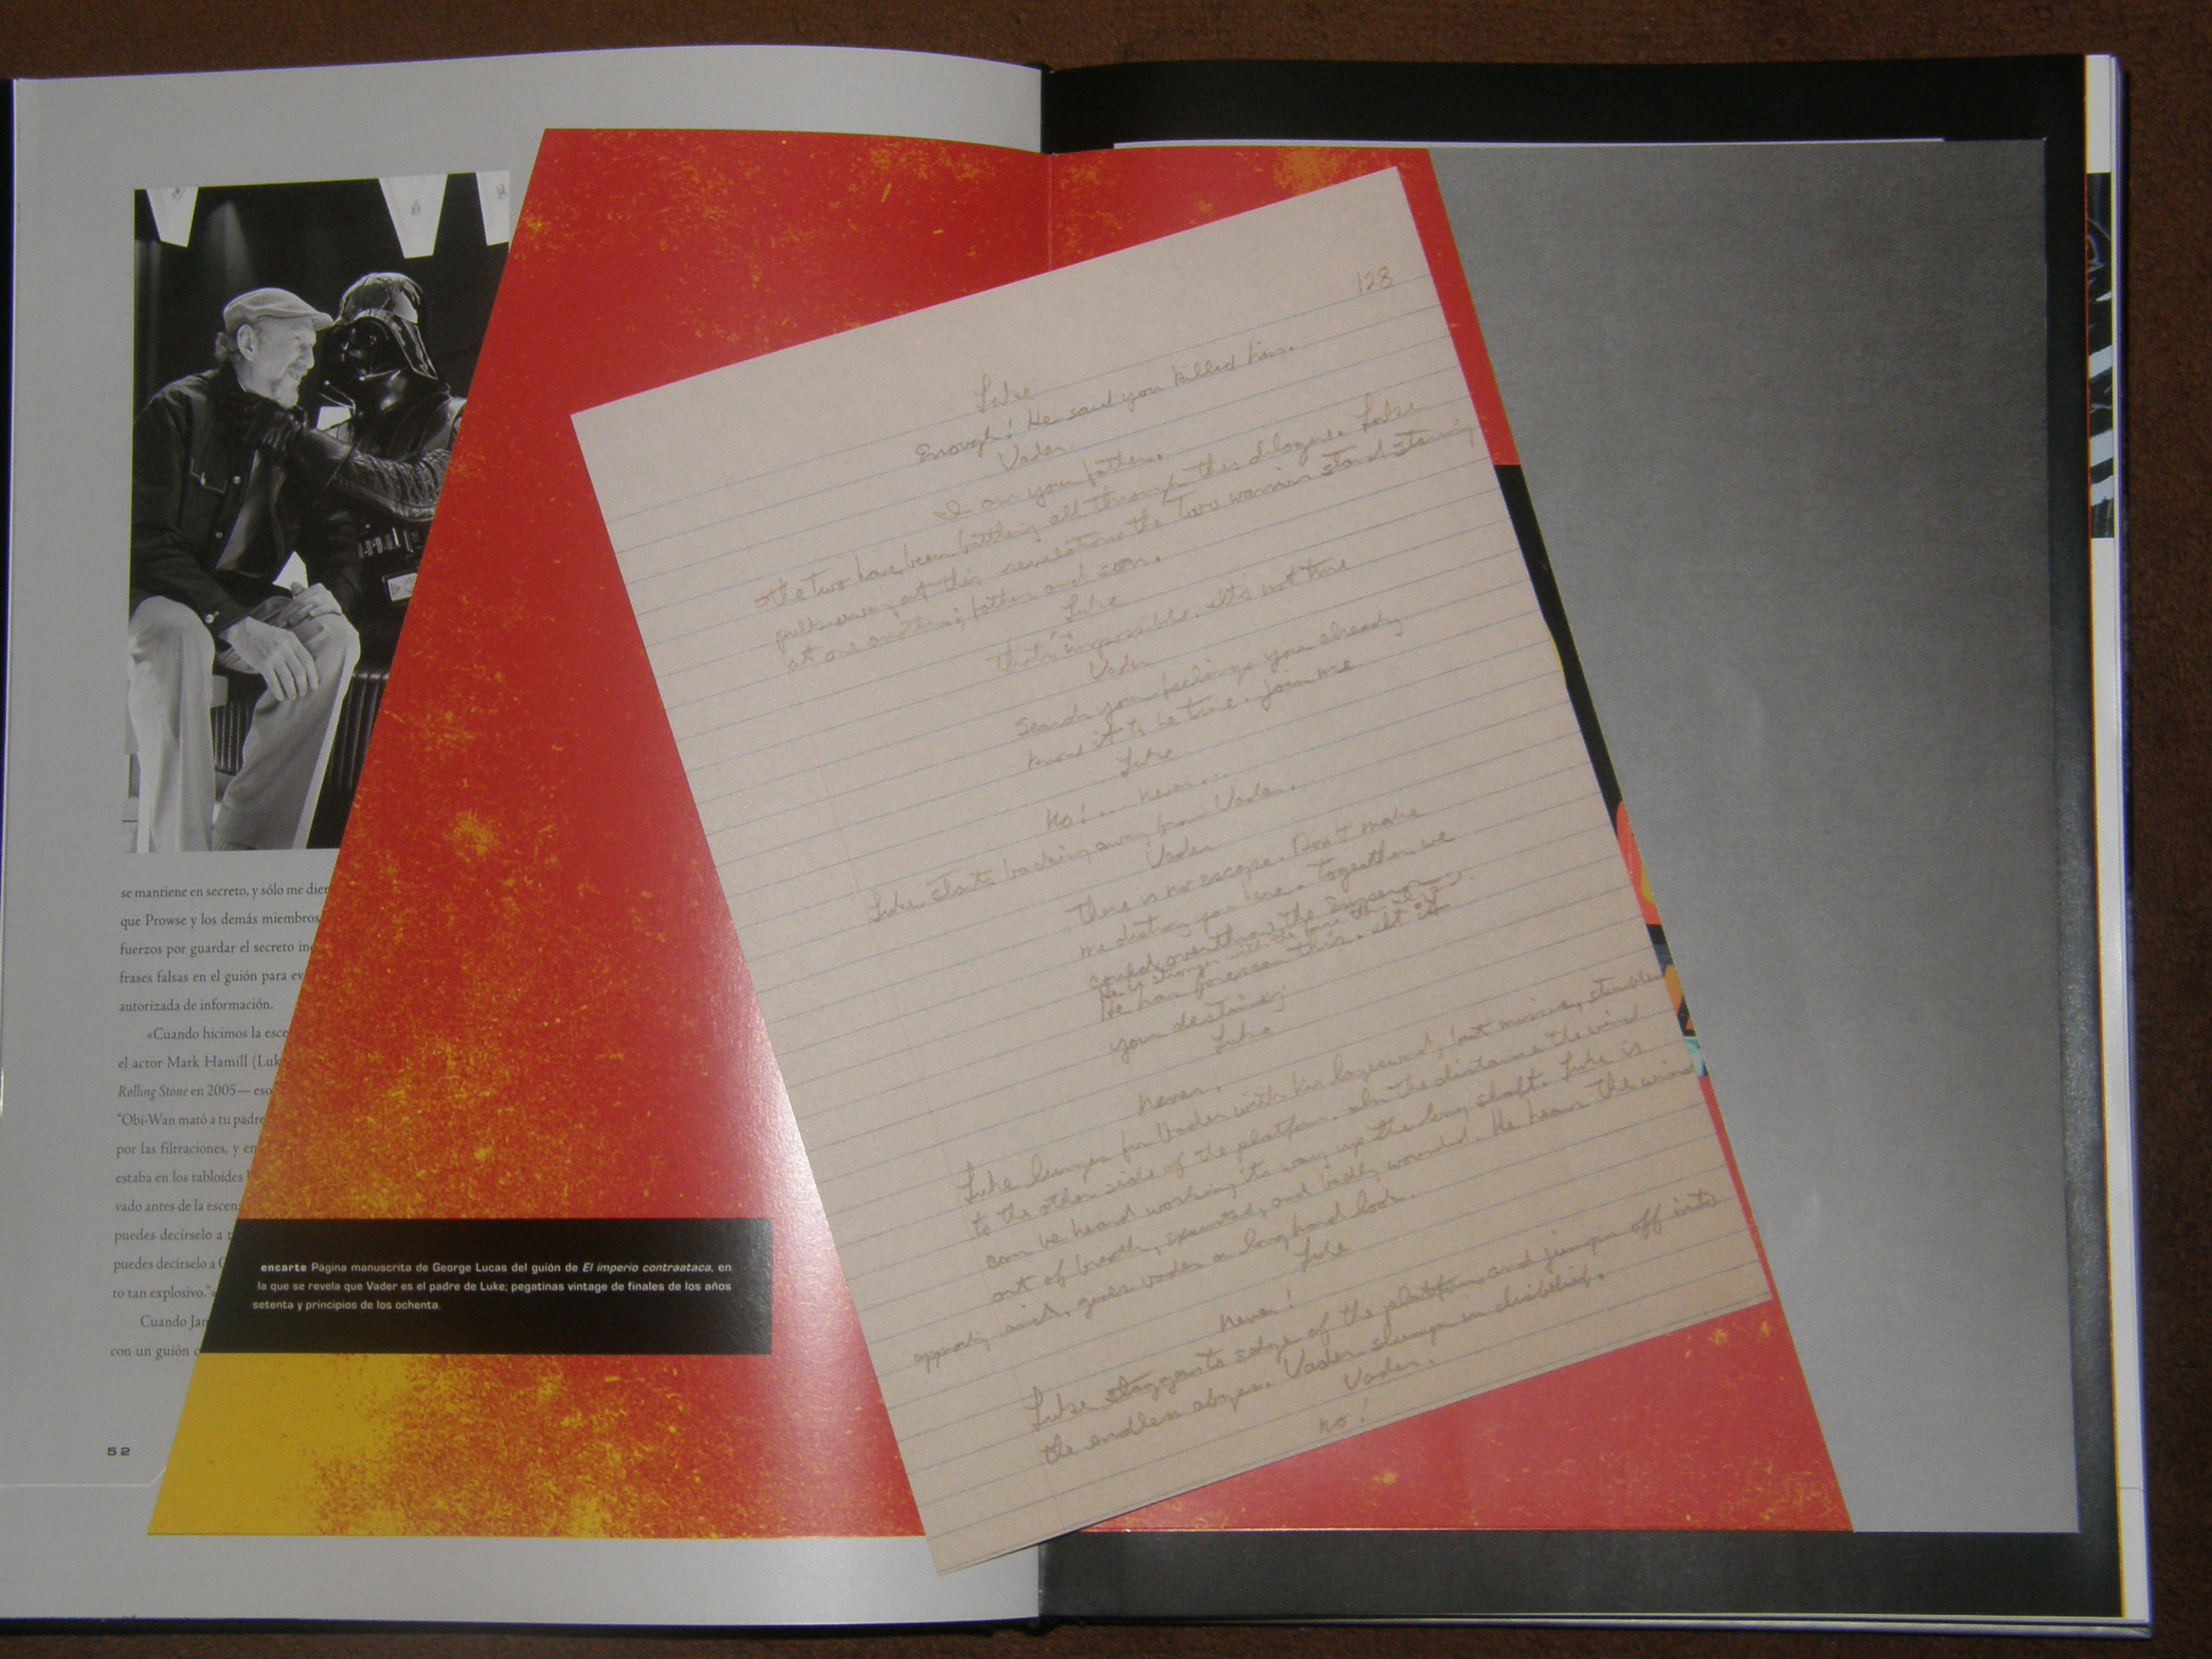 128
Luke
Enough! He said you killed him.
Vader.
I am your father.
The two have been battling all through this dilogue. Luke
pulls away at this revelation the two warriors stand staring
at one another; father and son.
Luke
That's impossible. It's not true
Vader
Search your feelings you already
know it to be true. join me
Luke
No!... never...
Luke starts backing away from Vader.
Vader
There is no escape. Don't make
me destroy you here. Together we
could overthrow the emperor.
He is stronger with the force
He has foreseen this. It is
your destiny
Luke
never.
Luke lunges for Vader with his lazersword, but misses, stumbles
to the other side of the platform. In the distance the wind
can be heard working its way up the long shaft. Luke is
out of breath, exausted, and badly wounded. He hears the wind
and, gives vader a long hard look.
Luke
Never!
Luke staggers to edge of the platform and jumps off into
the endless abyss. Vader slumps in disbelief.
Vader.
no!
se mantiene en secreto, y sólo me
que Prowse y los demás miembros
fuerzos por guardar el secreto
frases falsas en el guión para
autorizada de información.
«Cuando hicimos la
el actor Mark Hamill
Rolling Stone en 2005—
"Obi-Wan mató a tu padre
por las filtraciones, y
estaba en los tabloides
vado antes de la
puedes decírselo a
puedes decírselo a
to tan explosivo."
Cuando
con un guión
encarte Página manuscrita de George Lucas del guión de El imperio contraataca, en
la que se revela que Vader es el padre de Luke; pegatinas vintage de finales de los años
setenta y principios de los ochenta.
52